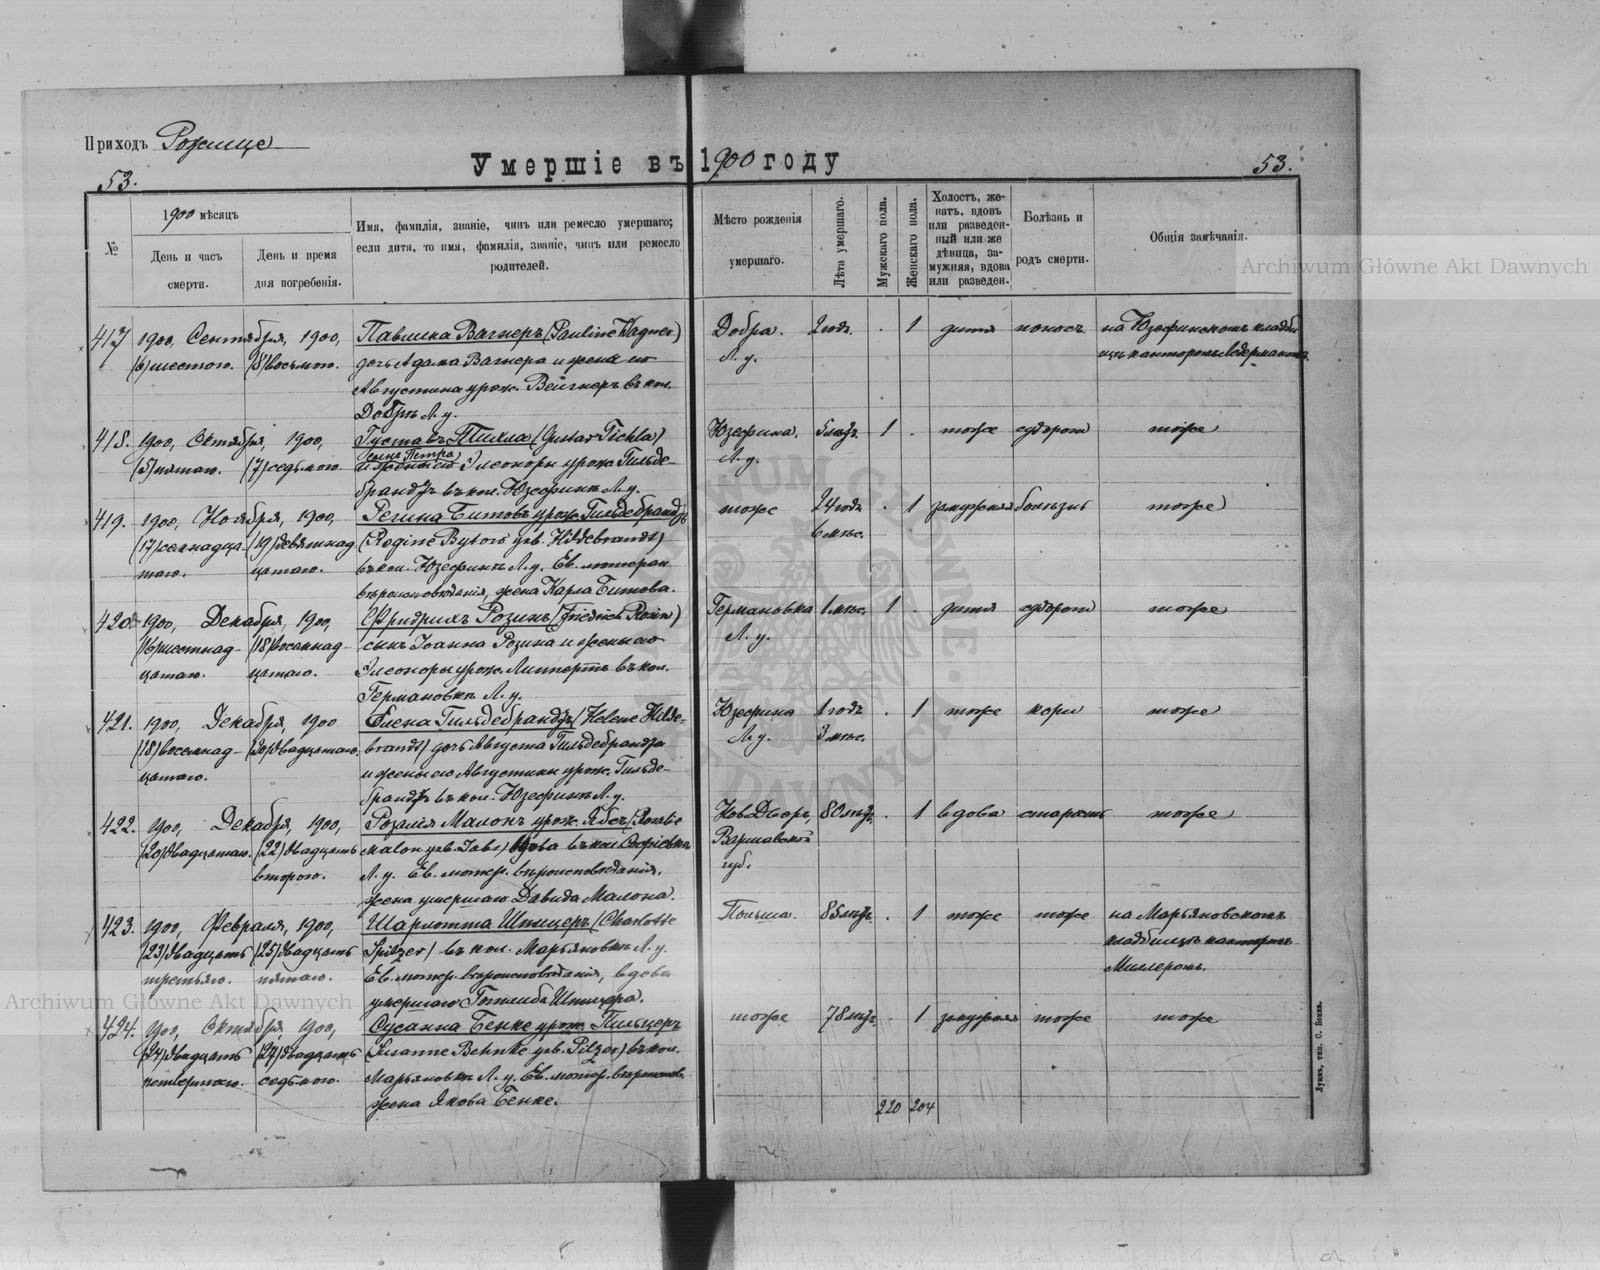 Приходъ Рожище
Умершіе въ 1900 году
53.
53.
№
1900 мѣсяцъ
День и часъ смерти.
День и время дня погребенія.
Имя, фамилія, званіе, чинъ или ремесло умершаго;
если дитя, то имя, фамилія, званіе, чинъ или ремесло
родителей.
Мѣсто рожденія
умершаго.
Лѣта умершаго.
Мужскаго пола.
Женскаго пола.
Холостъ, же-
натъ, вдовъ
или разведен-
ный или же
дѣвица, за-
мужняя, вдова
или разведен.
Болѣзнь и
родъ смерти.
Общія замѣчанія.
Archiwum Główne Akt Dawnych
417 1900, Сентября, 1900, Павлина Вагнеръ (Pauline Wagner) Добра. 2 год. . 1 дитя поносъ на Юзефинскомъ кладби
(6) шестого. (8) восьмого. дочь Адама Вагнера и жена его Л. у. щѣ канторомъ
Августина урож. Вейгнеръ въ кол.
Добрѣ Л. у.
418. 1900, Октября, 1900, Густавъ Тихла (Gustav Tichla) Юзефина. 5 1 . тоже судорог тоже
сынъ Петра
(5) пятаго. (7) седьмого Элеоноры урож. Гильде- Л. у.
брандтъ въ кол. Юзефинѣ Л. у.
419. 1900, Ноября, 1900, Регина Битовъ урож. Гильдебрандтъ тоже 24 года . 1 замужняя болѣзнь тоже
(17) семнадца- (19) девятнад (Regine Bytow geb. Hildebrandt) 6 мѣс.
таго. цатаго. въ кол. Юзефинѣ Л. у. Ев. лютеран.
вѣроисповѣданія, жена Карла Битова.
420. 1900, Декабря, 1900, Фридрихъ Розинъ (Friedrich Rosin) Германовка 1 мѣс. 1 . дитя судорог тоже
(16) шестнад- (18) восемнад- сынъ Іоанна Розина и жены его Л. у.
цатаго. цатаго. Элеоноры урож. Липпертъ въ кол.
Германовкѣ Л. у.
421. 1900, Декабря, 1900 Елена Гильдебрандтъ (Helene Hilde- Юзефина 1 годъ . 1 тоже кори тоже
(18) восемнад- (20) двадцатаго. brandt) дочь Августа Гильдебрандта Л. у. 3 мѣс.
цатаго. и жены его Августины урож. Гильде-
брандтъ въ кол. Юзефинѣ Л. у.
422. 1900, Декабря, 1900, Розалія Малонъ урож. Ябсъ (Rosalie Нов. Дворъ, 80 лѣтъ. 1 вдова старость тоже
(20) двадцатаго. (22) двадцать Malon geb. Jabs) вдова въ кол. Софіевкѣ Варшавской
второго. Л. у. Ев. лютер. вѣроисповѣданія, губ.
жена умершаго Давида Малона.
423. 1900, Февраля, 1900, Шарлотта Шпицеръ (Charlotte Польша. 85 лѣтъ. . 1 тоже тоже на Марьяновскомъ
(23) двадцать (25) двадцать Spitzer) въ кол. Марьяновкѣ Л. у. кладбищѣ канторомъ
третьяго. пятаго. Ев. лютер. вѣроисповѣданія, вдова Миллеромъ.
Archiwum Główne Akt Dawnych
умершаго Готлиба Шпицера.
424. 1900, Октября 1900, Сусанна Бенке урож. Пильцеръ тоже 78 лѣтъ. . 1 замужняя тоже тоже
(24) двадцать (27) двадцать Susanne Behnke geb. Pilzer) въ кол.
четвертаго. седьмого. Марьяновкѣ Л. у. Ев. лютер. вѣроиспов.
жена Якова Бенке.
220 204
Луцкъ, тип. С. Бокка.